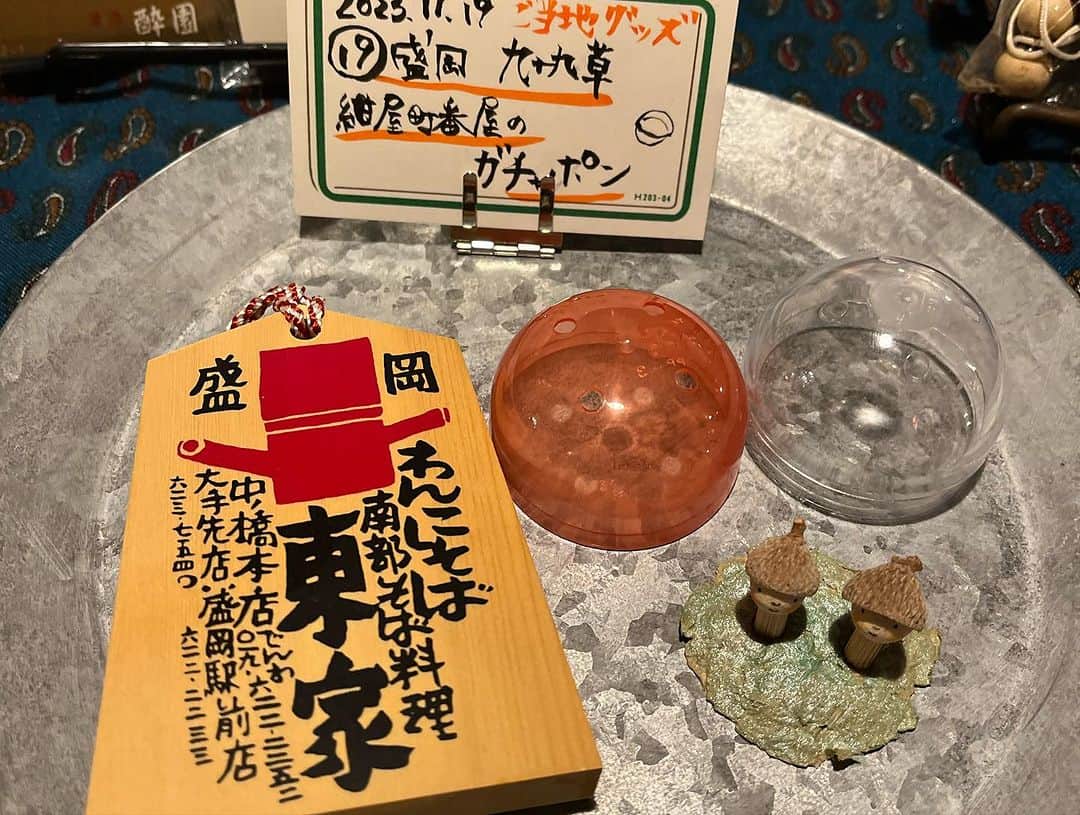 酔園
2023.11.19 ご当地グッズ
⑲盛岡 九十九草
紺屋町番屋の
ガチャポン
H203-04
盛岡
わんこそば
南部そば料理
東家
中ノ橋本店
でんわ
〇一九・六二二-二二五二
大手先店・盛岡駅前店
六二三・七五四〇
六二二-二二三三